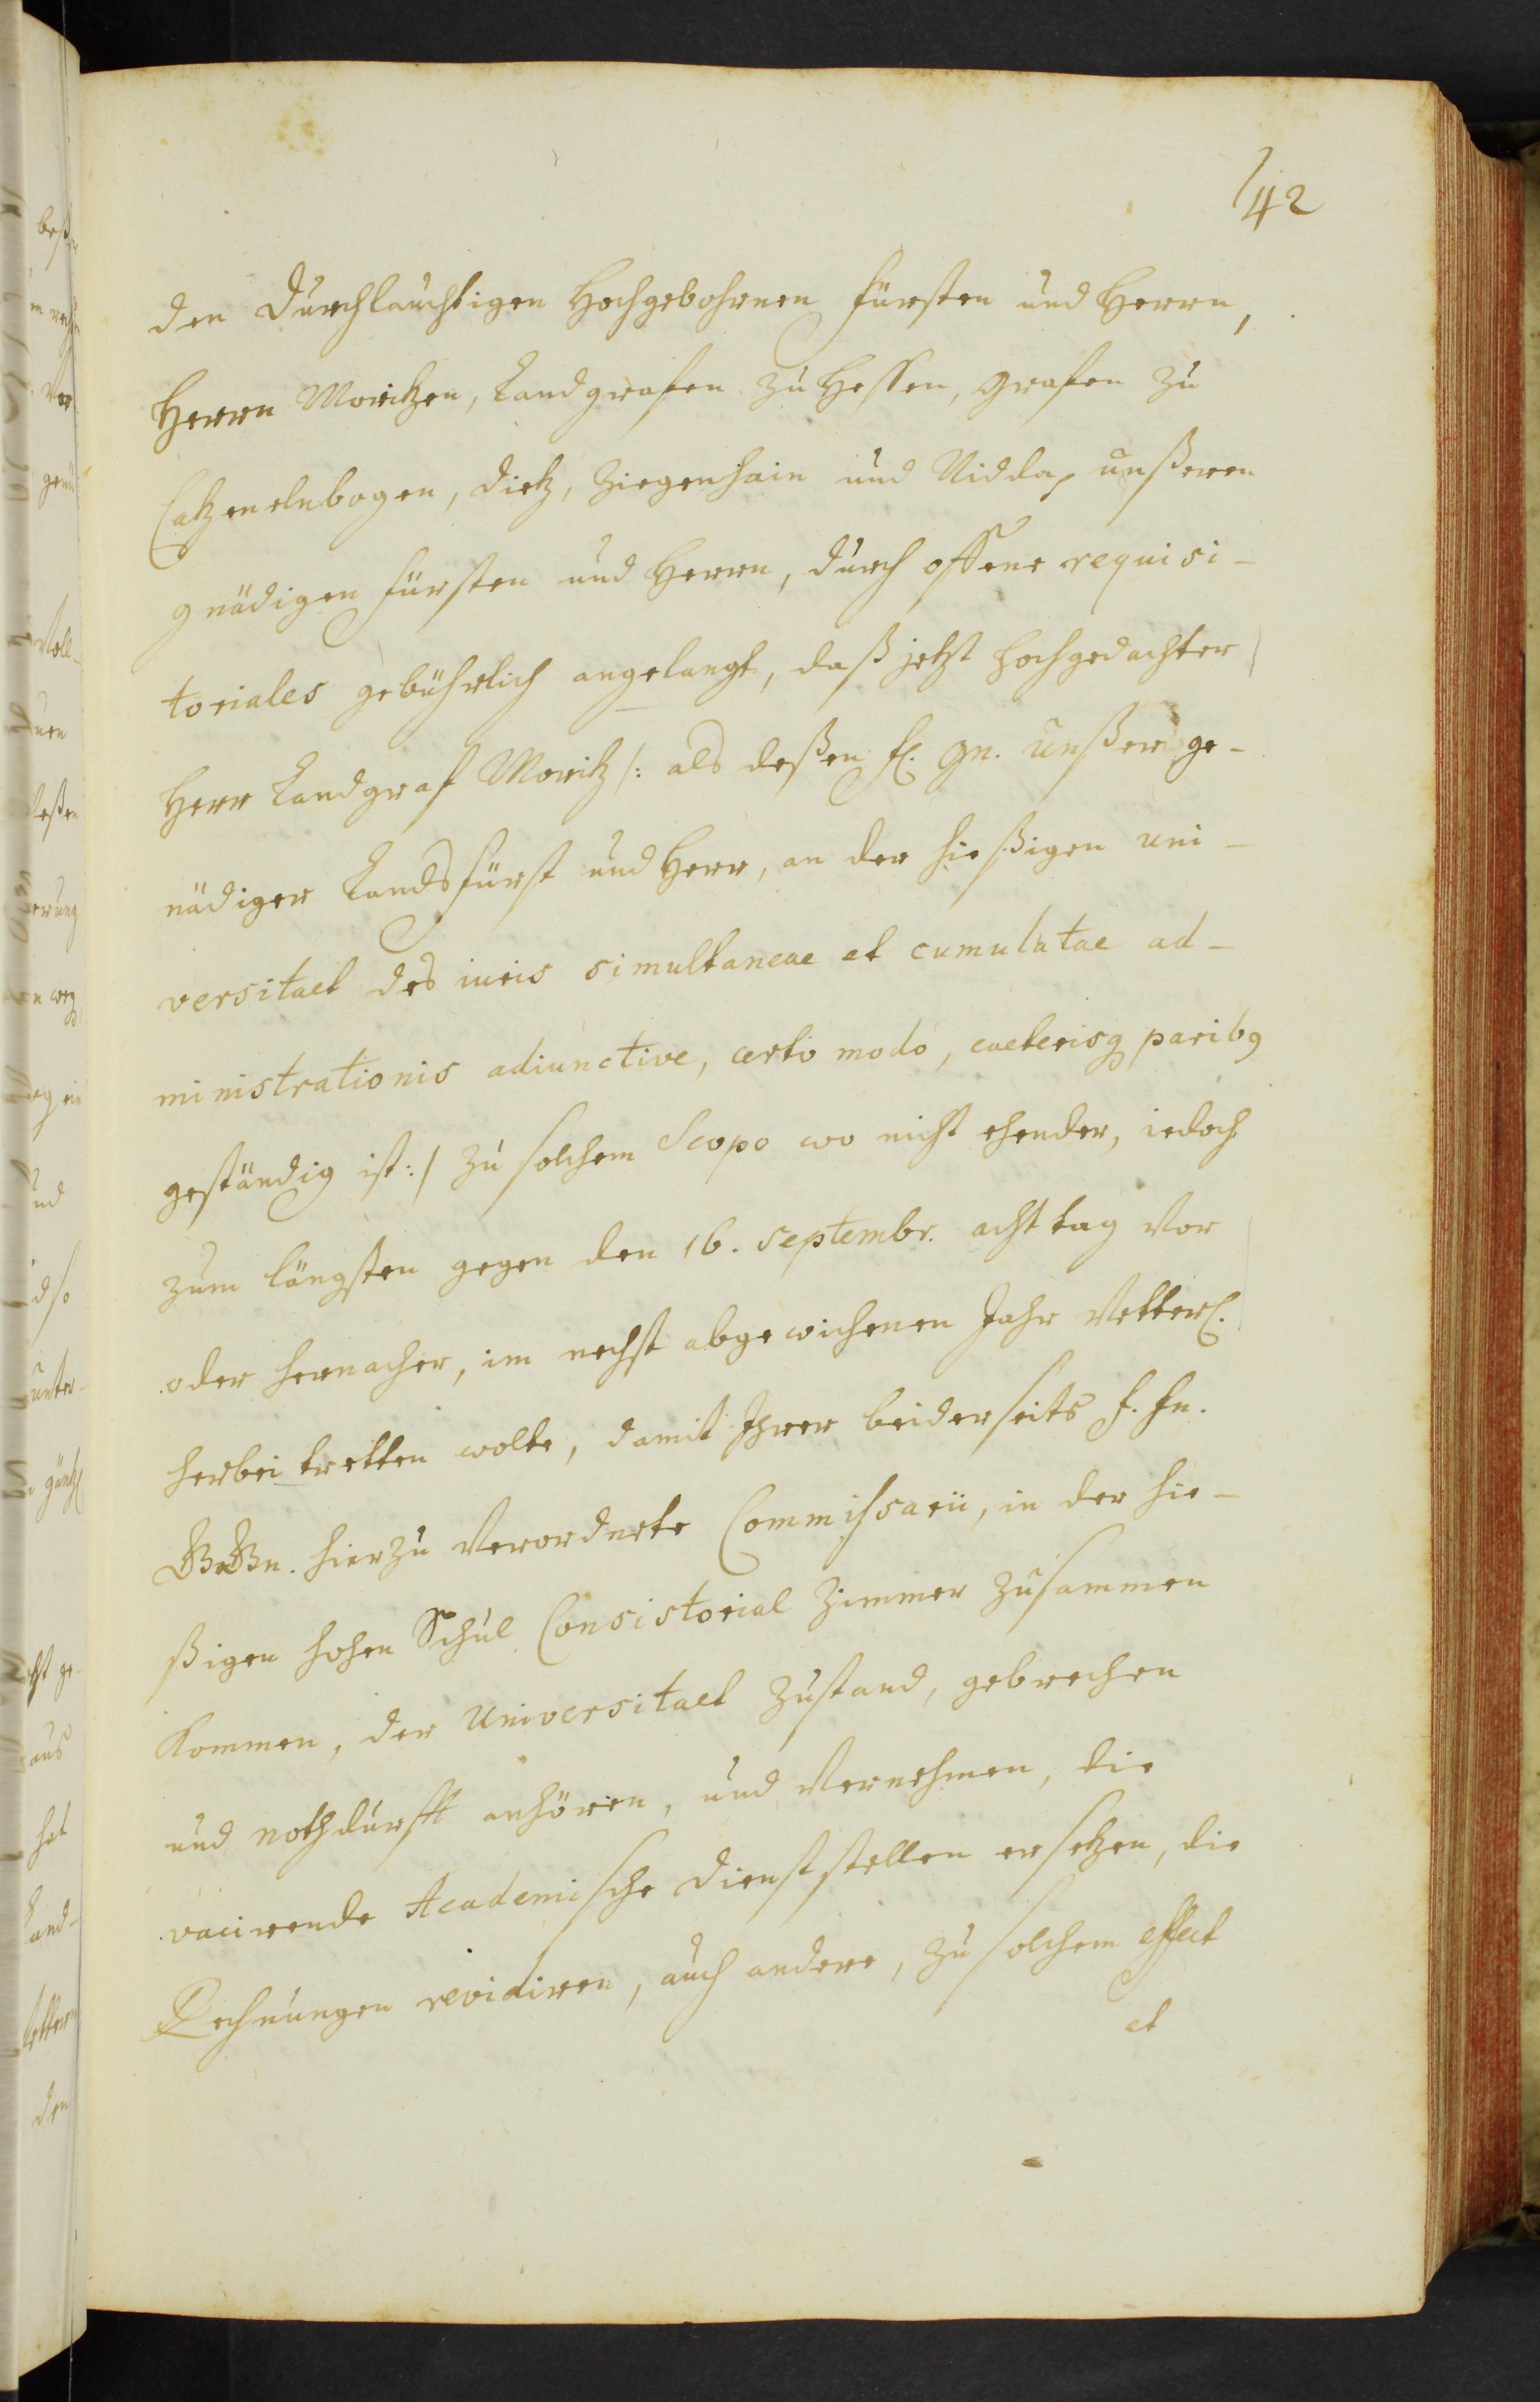 42
den Durchlauchtigen Hochgebohrnen Fürsten und Herrn,
Herrn Moritzen, Landgrafen zu Hessen, Grafen zu
Catzenelnbogen, Dietz, Ziegenhain und Nidda, unßeren
gnädigen Fürsten und Herrn, durch offene requisi-
toriales gebührlich angelangt, daß jetzt hochgedachter
Herr Landgraf Moritz /: als deßen fl. Gn. unßer ge-
nädiger Landsfürst und Herr, an der hießigen uni-
versitaet des iuris simultaneae et cumulatae ad-
ministrationis adiunctive, certo modo, caeterisq paribq
geständig ist :/ zu solchem Scopo wo nicht ehender, iedoch
zum längsten gegen den 16. Septembr. acht tag vor
oder hernacher, im nechst abgewichenen Jahr Vetterl.
herbei tretten wolte, damit Ihrer beiderseits f. fn.
GnGn. hierzu verordnete Commissarii, in der hie-
ßigen hohen Schul Consistorial Zimmer zusammen
kommen, der Universitaet Zustand, gebrechen
und nothdurfft anhören, und vernehmen, die
vacirende Academische dienststellen ersetzen, die
Rechnungen revidiren, auch andere, zu solchem effect
et